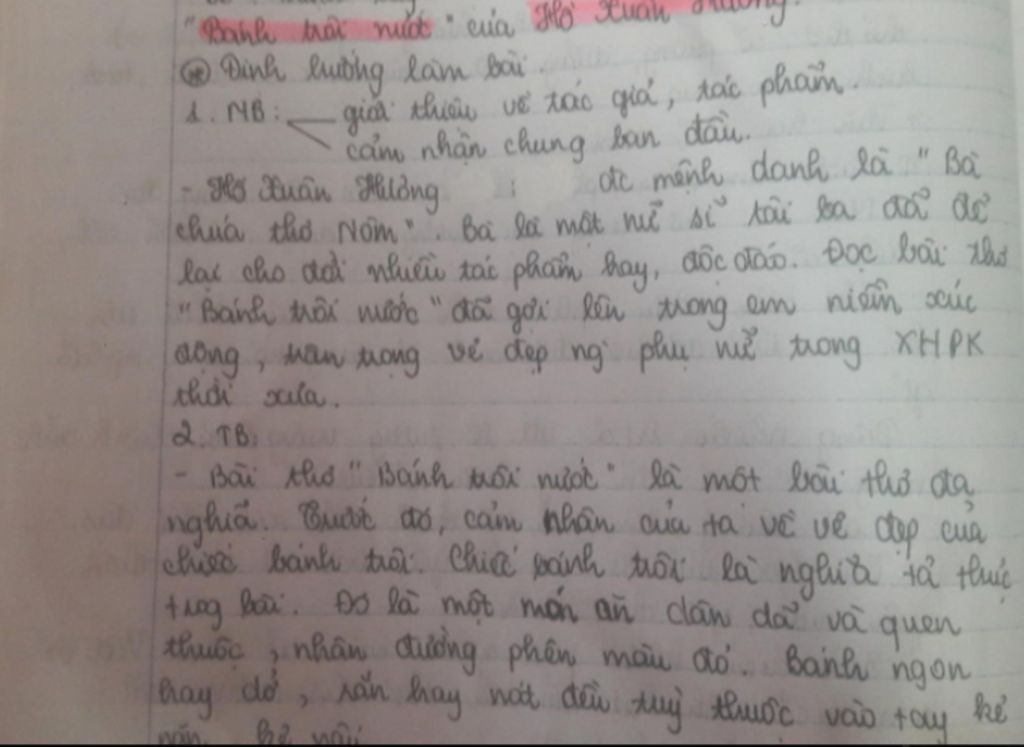 "Bánh trôi nước" của Hồ Xuân Hương.
⊛ Định hướng làm bài.
1. MB: giới thiệu về tác giả, tác phẩm.
cảm nhận chung ban đầu.
- Hồ Xuân Hương : đc mệnh danh là "Bà
chúa thơ Nôm". Bà là một nữ sĩ tài ba đã để
lại cho đời nhiều tác phẩm hay, độc đáo. Đọc bài thơ
"Bánh trôi nước" đã gợi lên trong em niềm xúc
động, trân trọng vẻ đẹp ng` phụ nữ trong XHPK
thời xưa.
2. TB:
- Bài thơ "Bánh trôi nước" là một bài thơ đa
nghĩa. Trước đó, cảm nhận của ta về vẻ đẹp của
chiếc bánh trôi. Chiếc bánh trôi là nghĩa tả thực
trog bài. Đó là một món ăn dân dã và quen
thuộc, nhân đường phên màu đỏ. Bánh ngon
hay dở, rắn hay nát đều tuỳ thuộc vào tay kẻ
nặn, kẻ